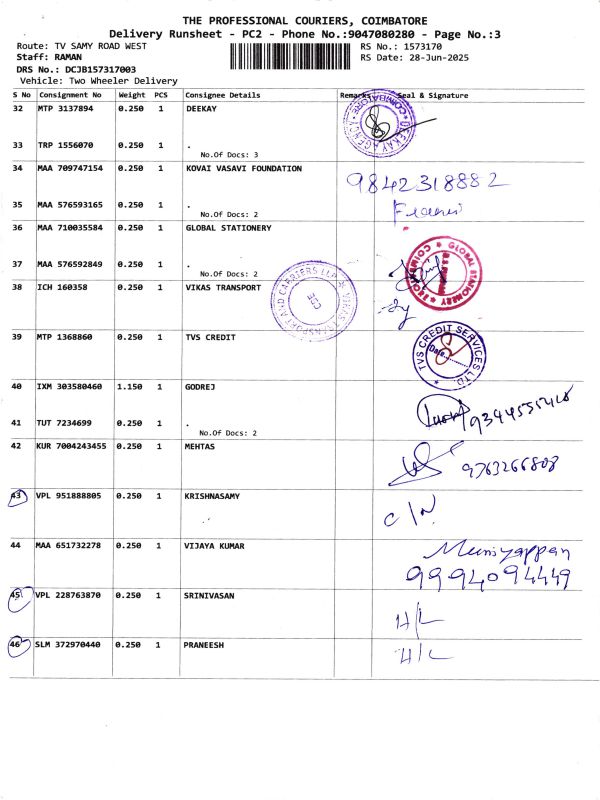 THE PROFESSIONAL COURIERS, COIMBATORE
Delivery Runsheet - PC2 - Phone No.:9047080280 - Page No.:3
Route: TV SAMY ROAD WEST RS No.: 1573170
Staff: RAMAN RS Date: 28-Jun-2025
DRS No.: DCJB157317003
Vehicle: Two Wheeler Delivery
S No Consignment No Weight PCS Consignee Details Remarks Seal & Signature
32 MTP 3137894 0.250 1 DEEKAY
33 TRP 1556070 0.250 1 .
No.Of Docs: 3
34 MAA 709747154 0.250 1 KOVAI VASAVI FOUNDATION 9842318882
35 MAA 576593165 0.250 1 .
No.Of Docs: 2
36 MAA 710035584 0.250 1 GLOBAL STATIONERY
GLOBAL STATIONERY
37 MAA 576592849 0.250 1 .
No.Of Docs: 2
38 ICH 160358 0.250 1 VIKAS TRANSPORT
VIKAS TRANSPORT AND CARRIERS LLP
39 MTP 1368860 0.250 1 TVS CREDIT
TVS CREDIT SERVICES LTD.
Date
40 IXM 303580460 1.150 1 GODREJ
41 TUT 7234699 0.250 1 .
No.Of Docs: 2
42 KUR 7004243455 0.250 1 MEHTAS
43 VPL 951888805 0.250 1 KRISHNASAMY
44 MAA 651732278 0.250 1 VIJAYA KUMAR Muniyappan
9994094449
45 VPL 228763870 0.250 1 SRINIVASAN H/L
46 SLM 372970440 0.250 1 PRANEESH H/L